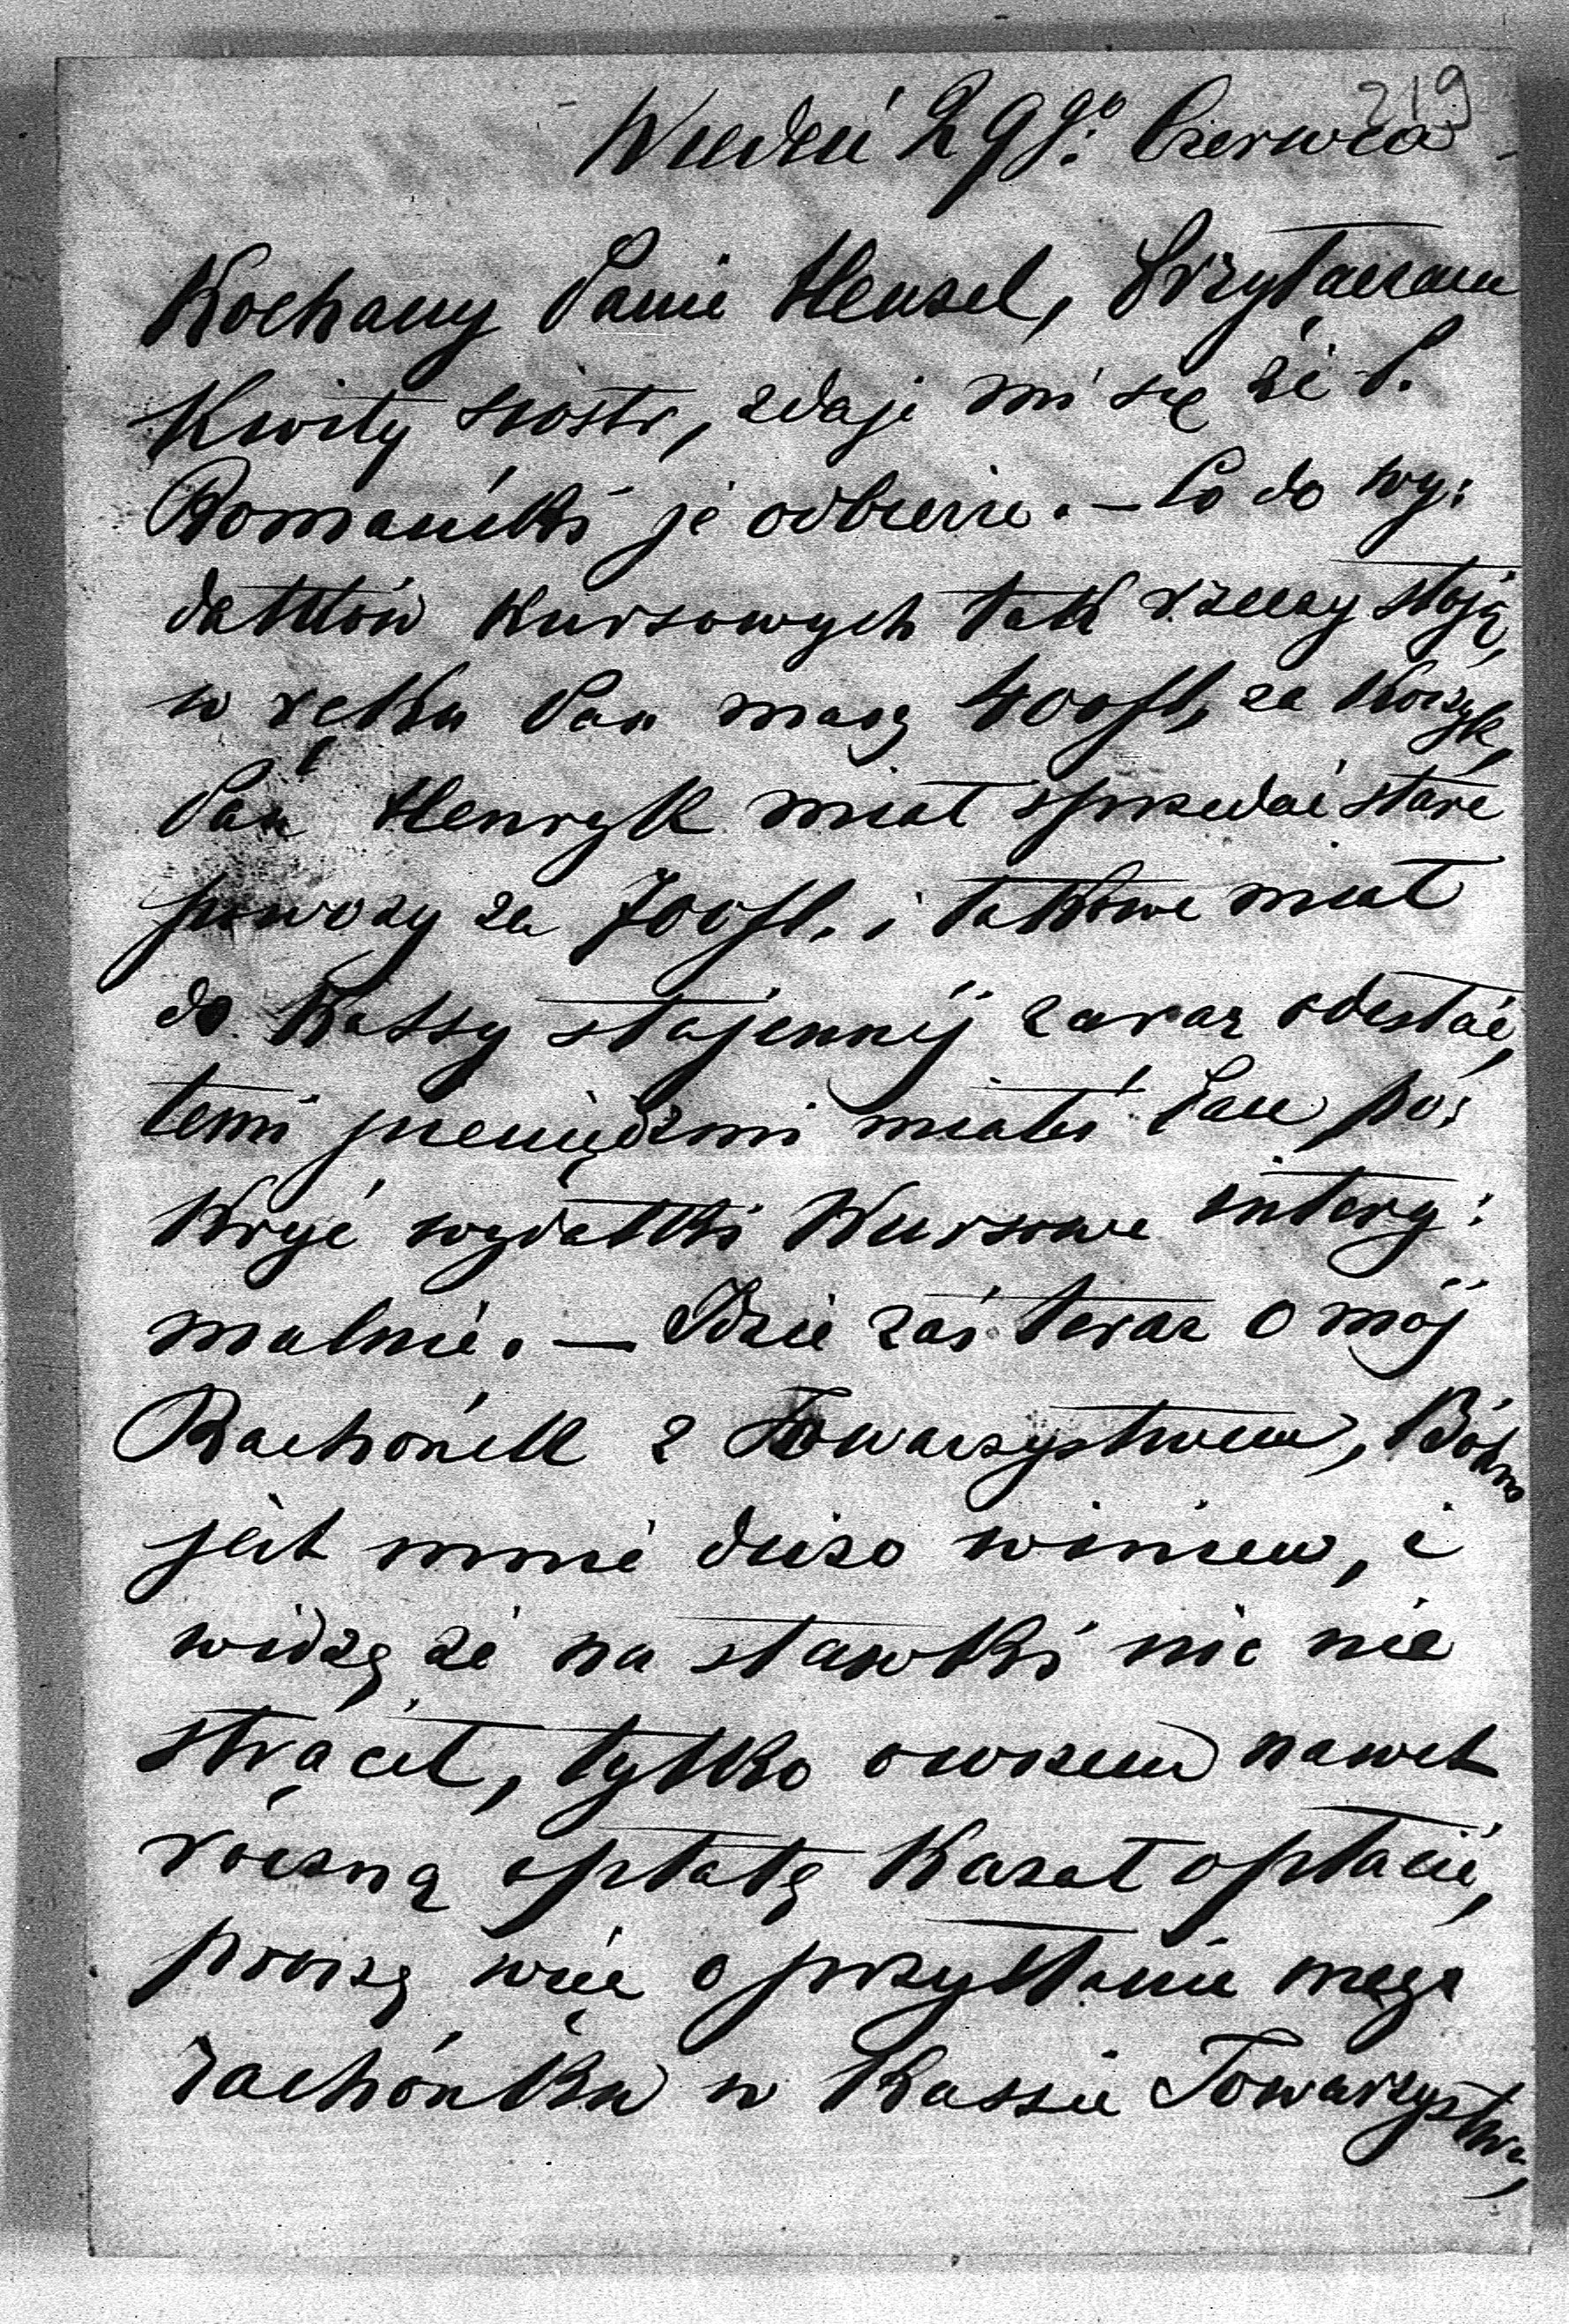 219
Wiedeń 29go Czerwca
Kochany Panie Hensel, Przyłączam
Kwity siostr, zdaje mi się że P.
Romański je odbierze. — Co do wy:
datków kursowych tak rzeczy stoją,
w ręku Pan masz 400fl, za Koczyk,
Pan Henryk miał sprzedać stare
powozy za 700fl. i takowe miał
do Kassy stajennéj zaraz odesłać,
temi pieniędzmi miałeś Pan po:
kryć wydatki Kursowe intery:
malnie. — Idzie zaś teraz o mój
Rachónek z Towarzystwem, Böhm
jest mnie dużo winien, i
widzę że na stawki nic nie
strącił, tylko owszem nawet
roczną opłatę Kazał opłacić,
proszę więc o przysłanie mego
rachónku w Kassie Towarzystwa,